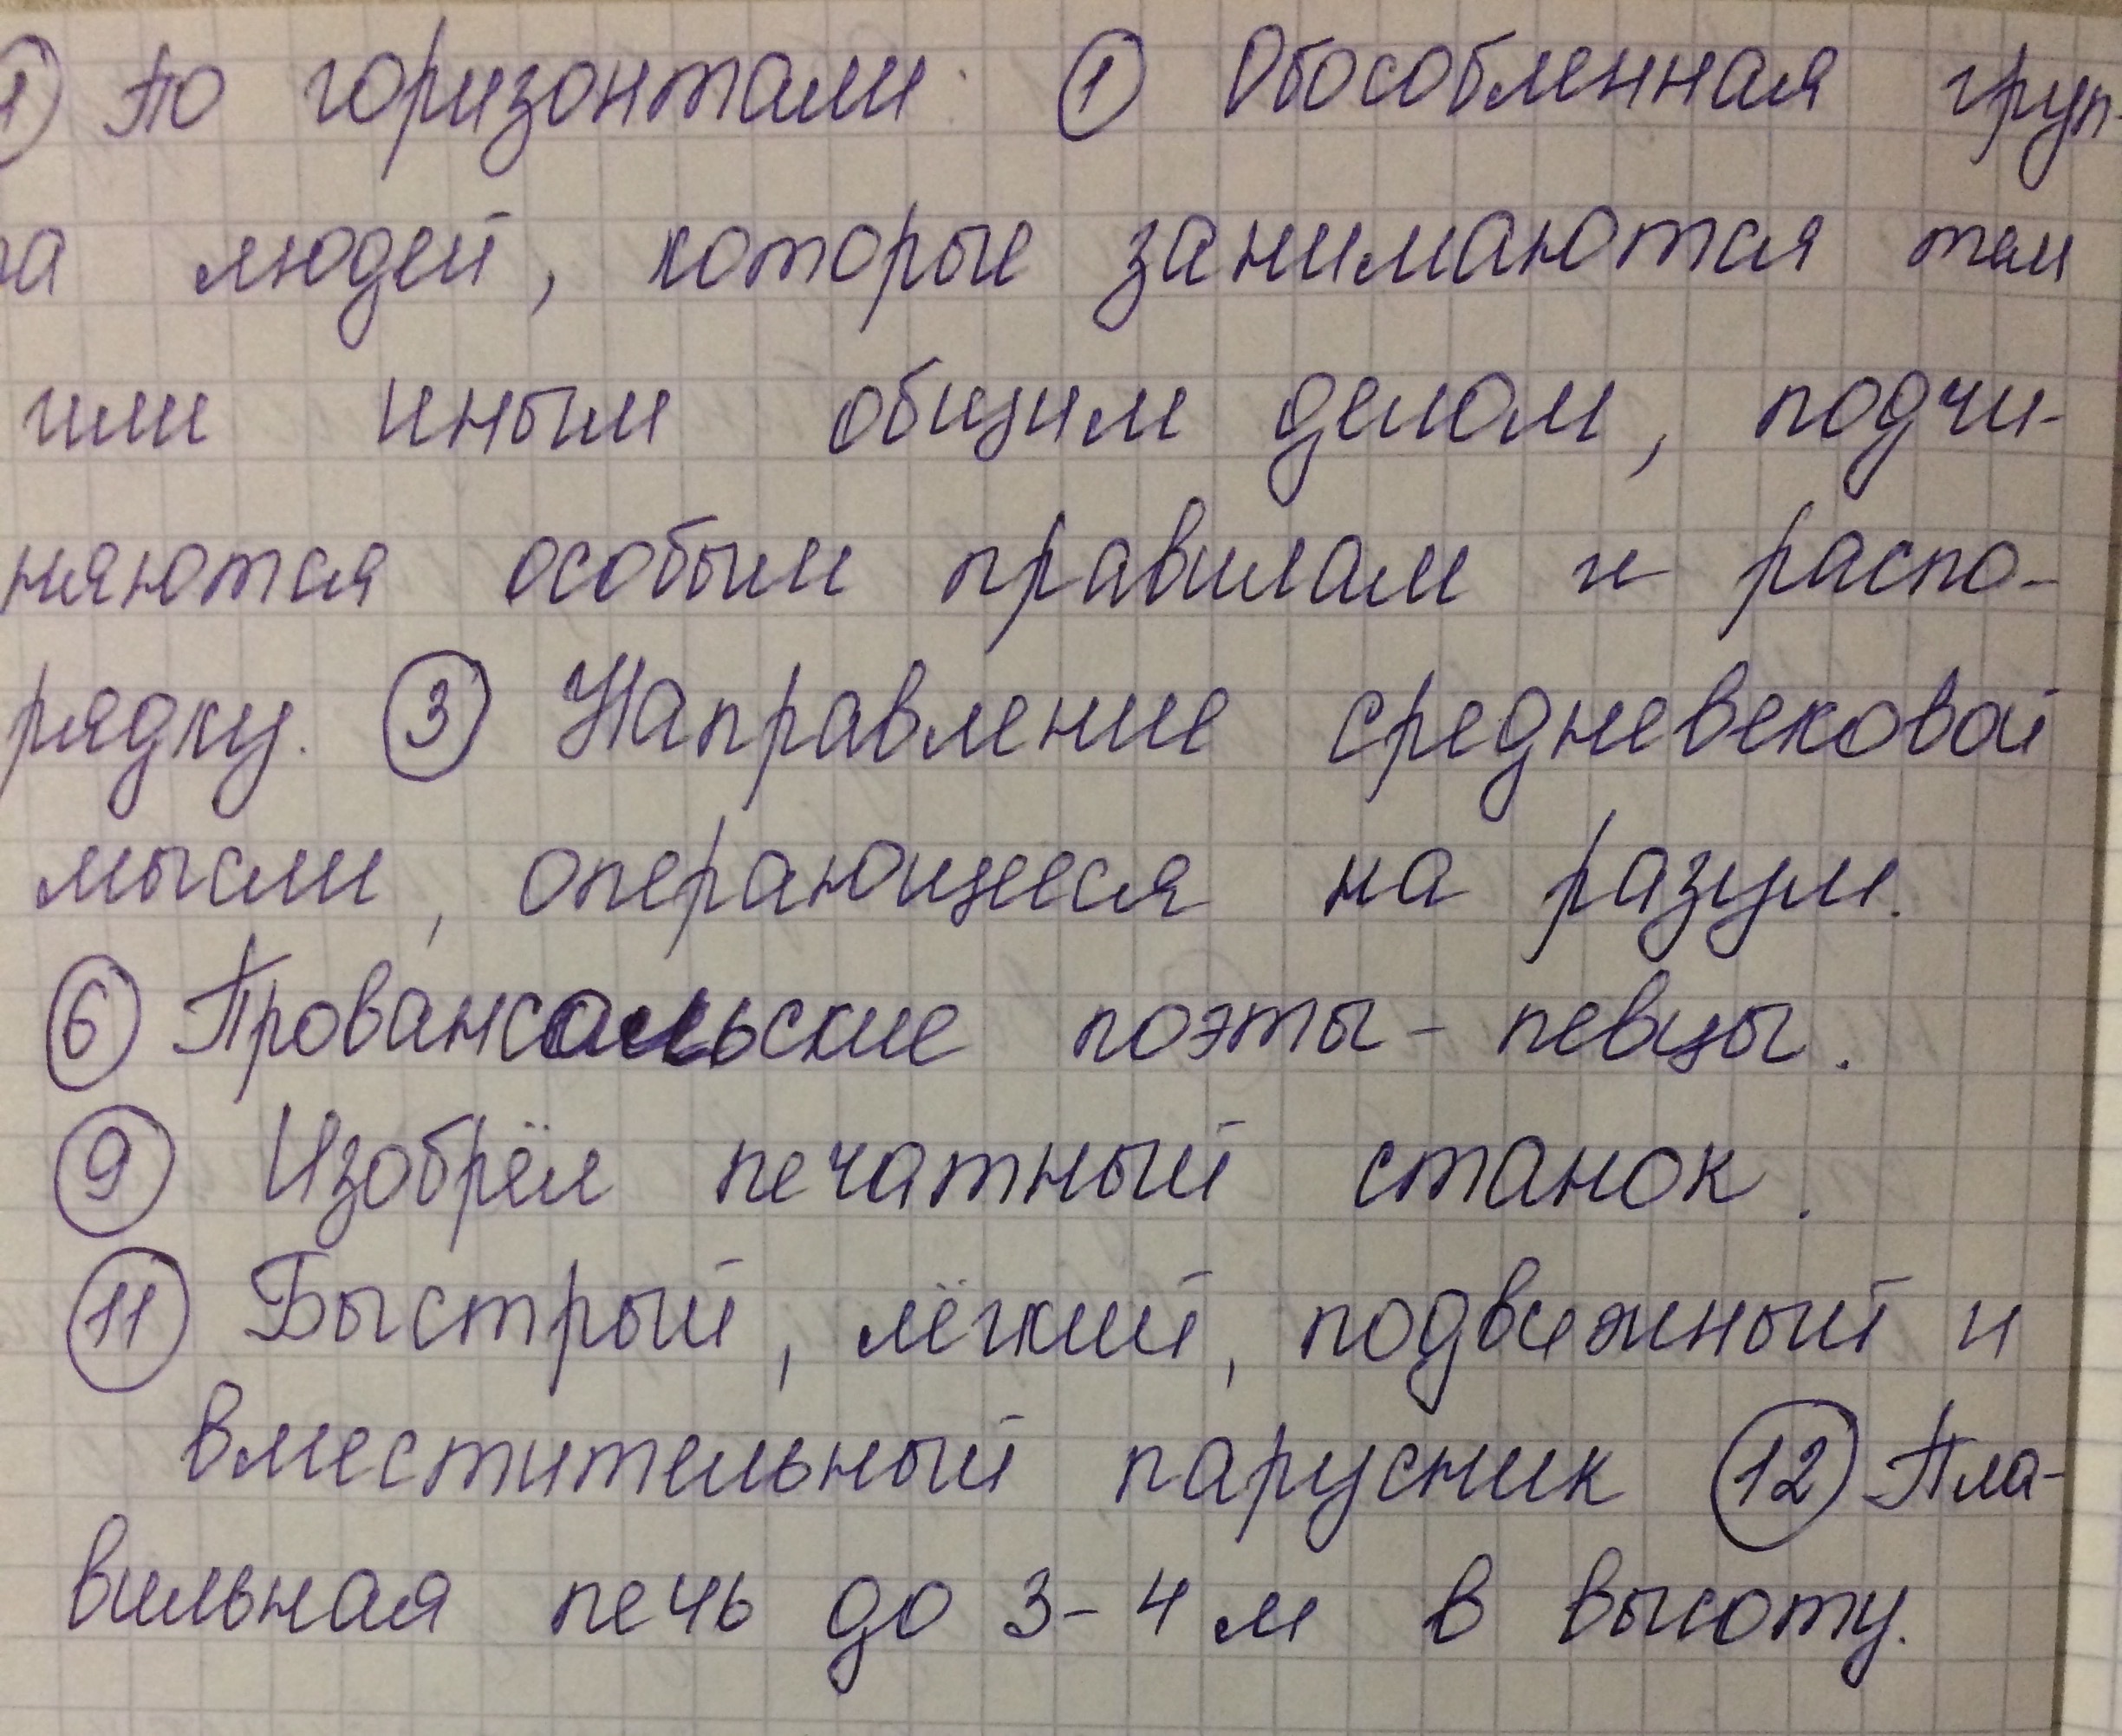 1 По горизонтали: 1 Обособленная груп-
па людей, которые занимаются тем
или иным общим делом, подчи-
няются особым правилам и распо-
рядку. 3 Направление средневековой
мысли, операющееся на разум.
6 Провансальские поэты - певцы.
9 Изобрёл печатный станок.
11 Быстрый, лёгкий, подвижный и
вместительный парусник 12 Пла-
вильная печь до 3-4 м в высоту.